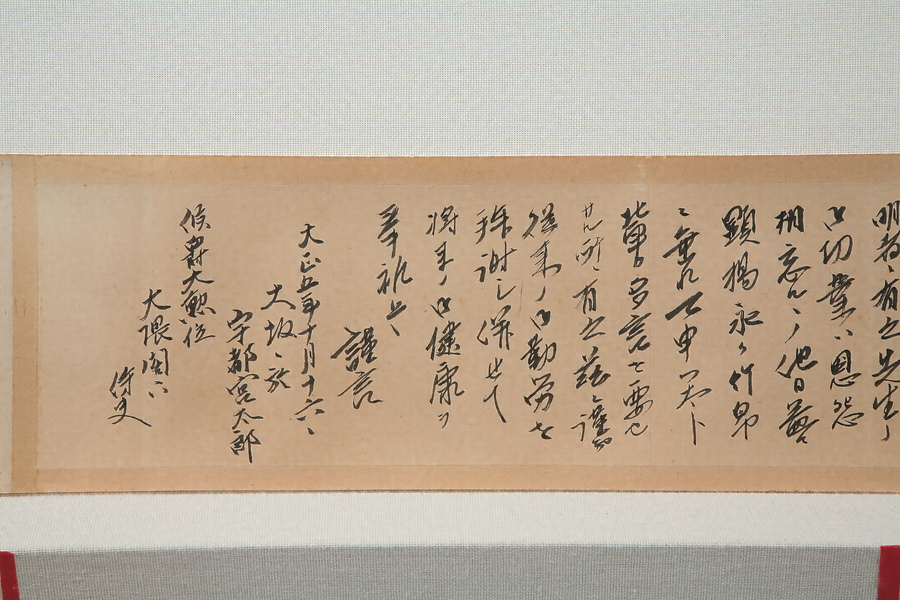 明敎ニ有之先生ノ
御功業ハ恩怨
相忘ルヽノ他日益
顕揚永ク竹帛
ニ垂れ可申 ト
輩ノ多言を要セ
サル所ニ有之茲ニ謹而
従来ノ御勤労を
拝謝し併せて
将来ノ御健康ヲ
奉祈上候
謹言
大正五年十月十六日
大坂ニ於
宇都宮太郎
侯爵大勲位
大隈閣下
侍史